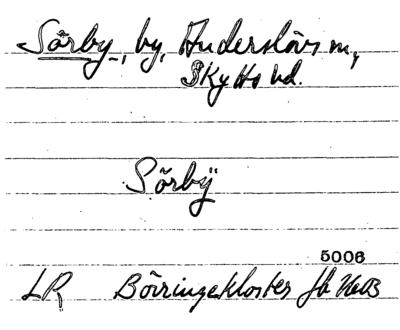 Sörby, by, Anderslövs m,
Skytts hd.
Sörbÿ
5006
LR Börringekloster Jb